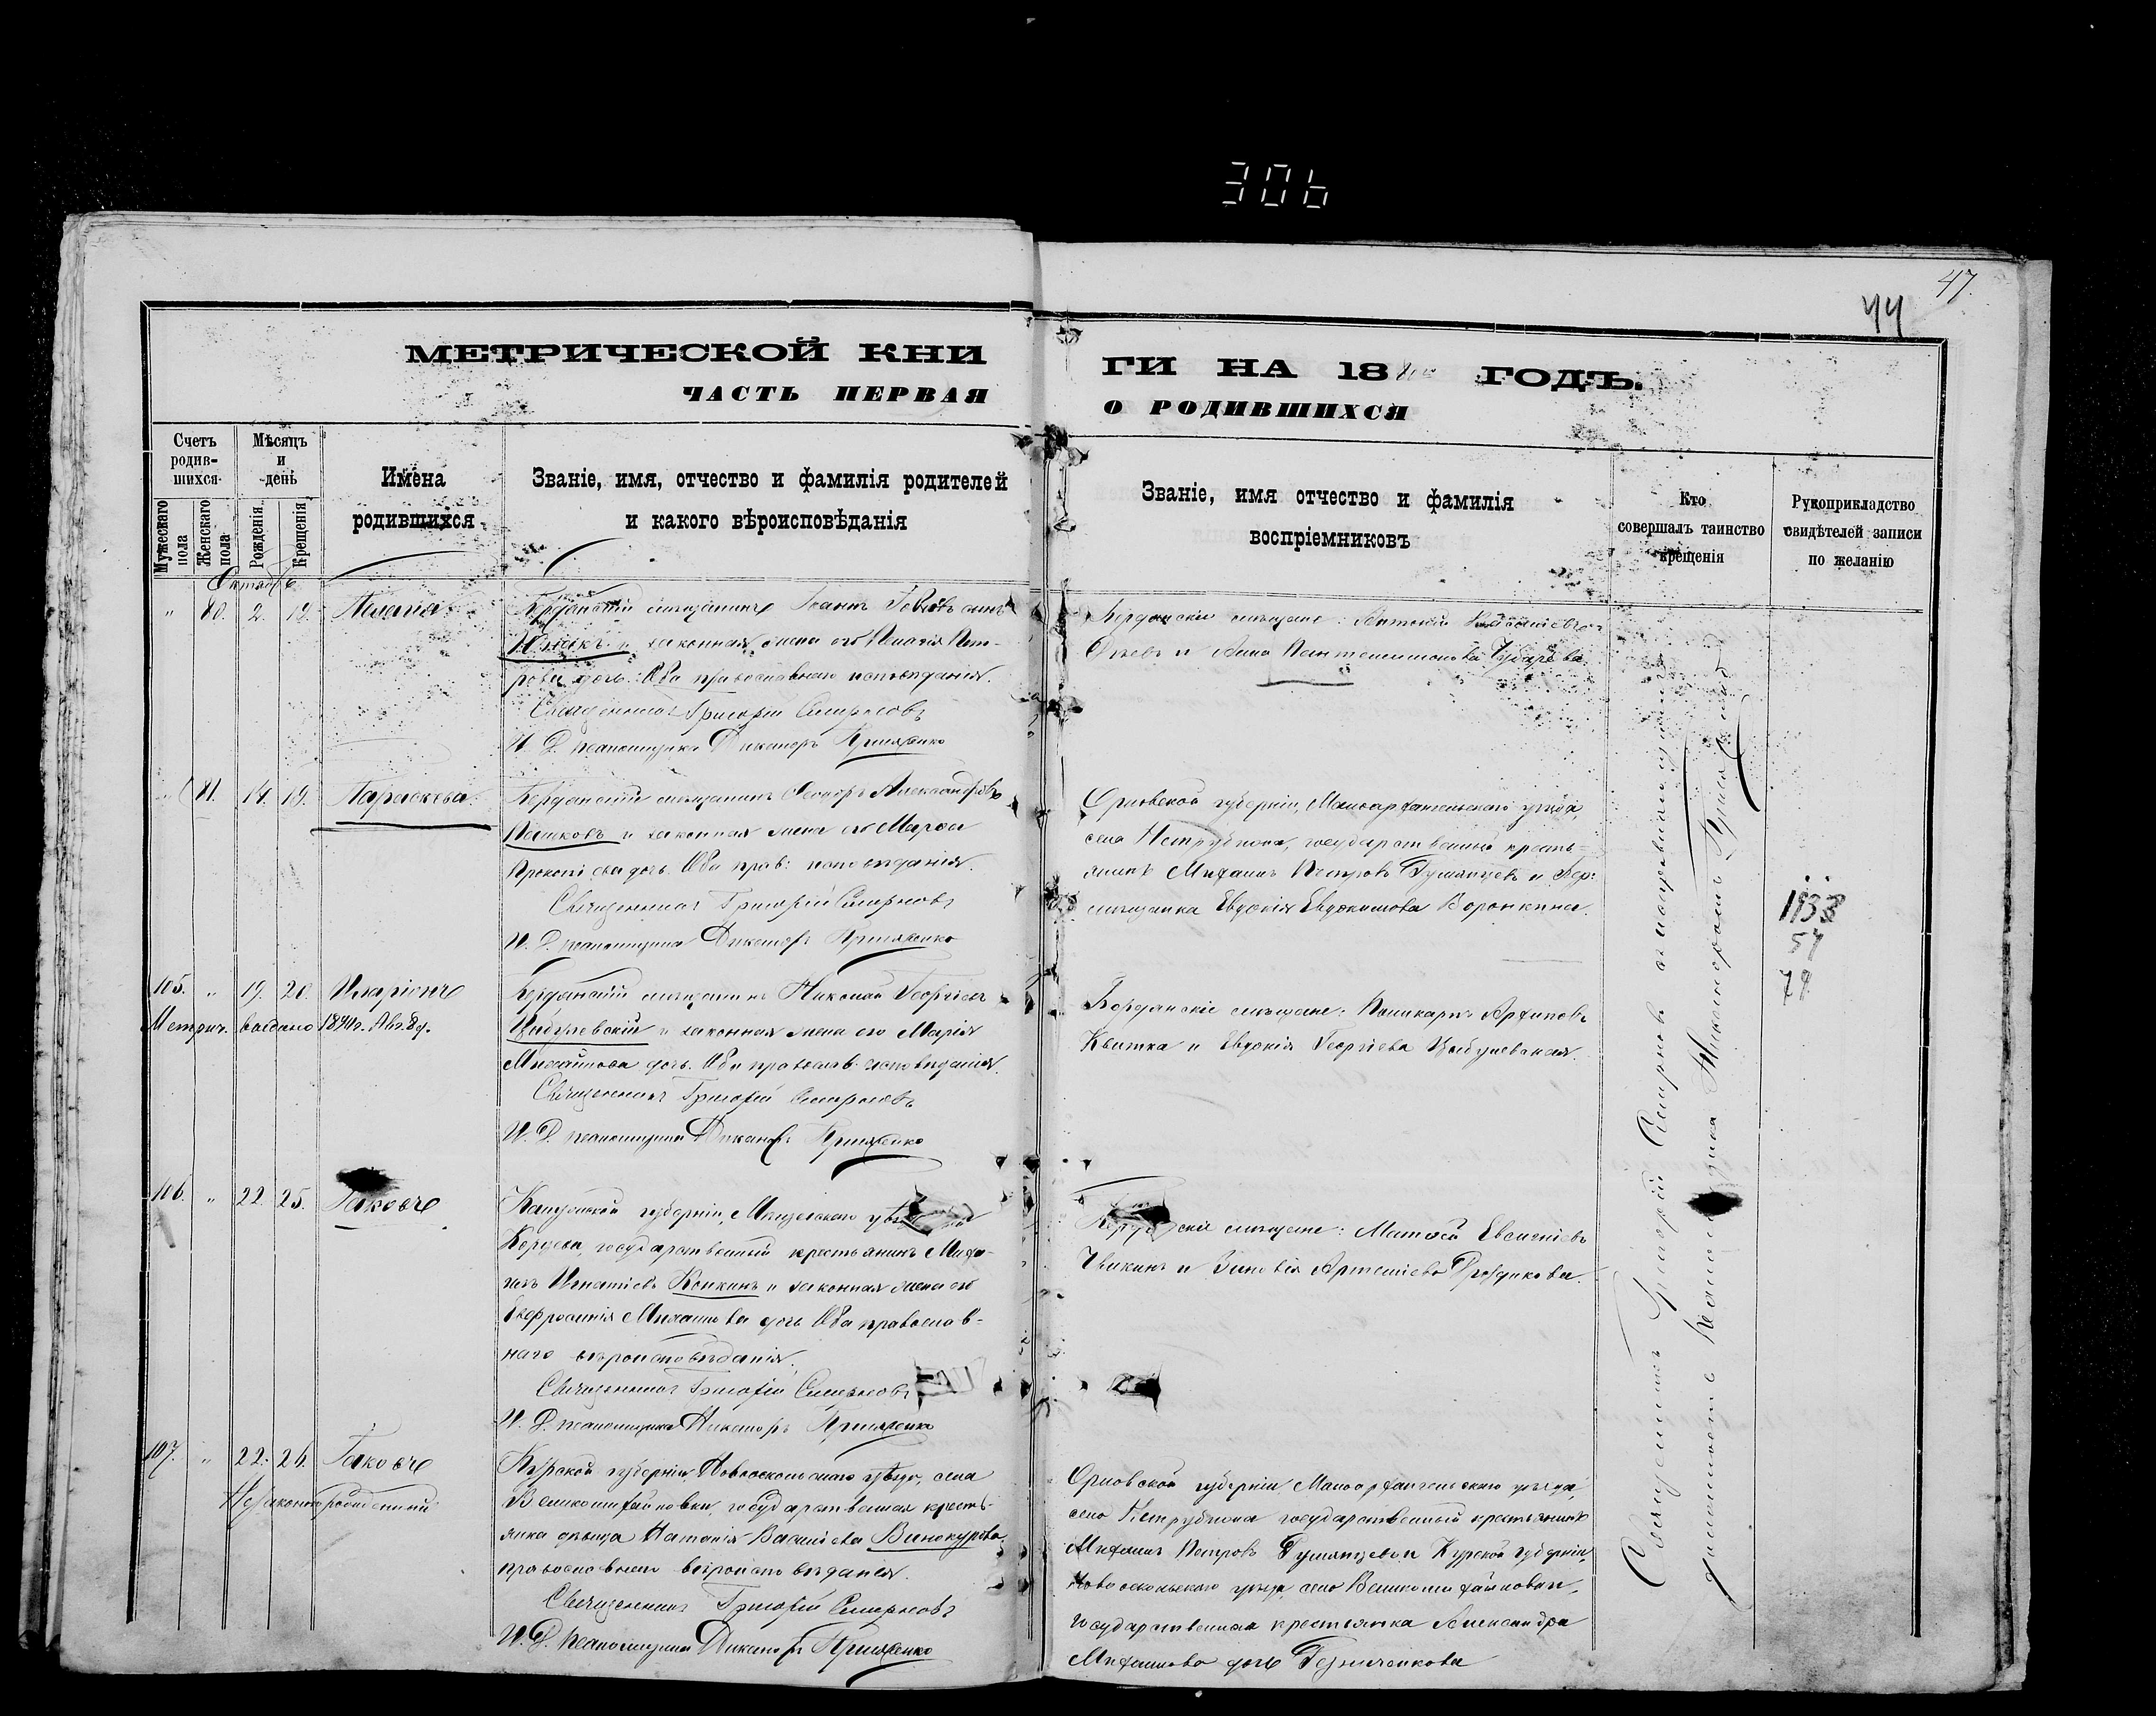 306
47.
44
МЕТРИЧЕСКОЙ КНИ
ЧАСТЬ ПЕРВАЯ
ГИ НА 18 ГОДЪ.
О РОДИВШИХСЯ
Счетъ родив-шихся.
Мужескаго пола
Женскаго пола
Мѣсяцъ и день
Рожденія.
Крещенія
Имена родившихся
Званіе, имя, отчество и фамилія родителей
и какого вѣроисповѣданія
Званіе, имя отчество и фамилія
воспріемниковъ
Кто
совершалъ таинство
крещенія
Рукоприкладство
свидѣтелей записи
по желанію
Октябрь
" 80. 2. 12.
законная жена его Пелагія Пет-
рова дочь. Оба православнаго исповѣданія.
Священникъ Григорій Смирновъ
И. Д. псаломщика Никаноръ
Бердянскіе мѣщане: Антоній
и Анна Пантелеимонова
81. 14. 19. Параскева.
Бердянскій мѣщанинъ Ѳеодоръ Александровъ
Пашковъ и законная жена его Марѳа
Прокопіева дочь. Оба прав: исповѣданія.
Священникъ Григорій Смирновъ
И. Д. псаломщика Никаноръ
Орловской губерніи, Малоархангельскаго уѣзда,
села государственный кресть-
янинъ Михаилъ Петровъ Румянцевъ и Бер:
мѣщанка Евдокія Евдокимова Воронкина.
1938
54
79
105. " 19. 20. Иларіонъ
Метрич. выдано 1890г. Авг. 8д.
Бердянскій мѣщанинъ Николай Георгіевъ
Цыбулевскій и законная жена его Марія
Михайлова дочь. Оба православ: исповѣданія.
Священникъ Григорій Смирновъ
И. Д. псаломщика Никаноръ
Бердянскіе мѣщане: Поликарпъ Архиповъ
Квитка и Евдокія Георгіева Цыбулевская.
106. " 22. 25. Іаковъ
Калужской губерніи,
государственный крестьянинъ Миха-
илъ Игнатіевъ и законная жена его
Евфросинія Михайлова дочь Оба православ-
наго вѣроисповѣданія.
Священникъ Григорій Смирновъ
И. Д. псаломщика Никаноръ
мѣщане: Матѳей Евсигніевъ
Чикинъ и Зиновія Артеміева Дроздикова.
107. " 22. 26. Іаковъ
Незаконнорожденный
Курской губерніи Новооскольскаго уѣзда, села
Великомихайловки, государственная кресть-
янка дѣвица Наталія Васильева Винокурова
православнаго вѣроисповѣданія.
Священникъ Григорій Смирновъ
И. Д. псаломщика Никаноръ
Орловской губерніи Малоархангельскаго уѣзда,
села государственный крестьянинъ
Михаилъ Петровъ Румянцевъ и Курской губерніи,
Новооскольскаго уѣзда, села Великомихайловки,
государственная крестьянка Александра
Михайлова дочь
Священникъ Григорій Смирновъ